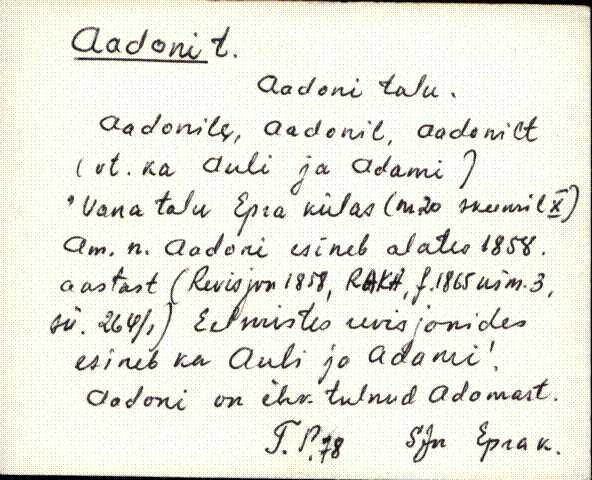 Aadoni t.
Aadoni talu.
Aadonile, Aadonil, Aadonilt
(vt. ka Auli ja Adami)
"Vana talu Epra külas (m20 skeemil X)
Am. n. Aadoni esineb alates 1858.
aastast (Revisjon 1858, RAKA, f.1865 nim.3,
sü. 264/1) Eelmistes revisjonides
esineb ka Auli ja Adami".
Aadoni on ehk tulnud Adomast.
T.P.78 SJn Epra k.